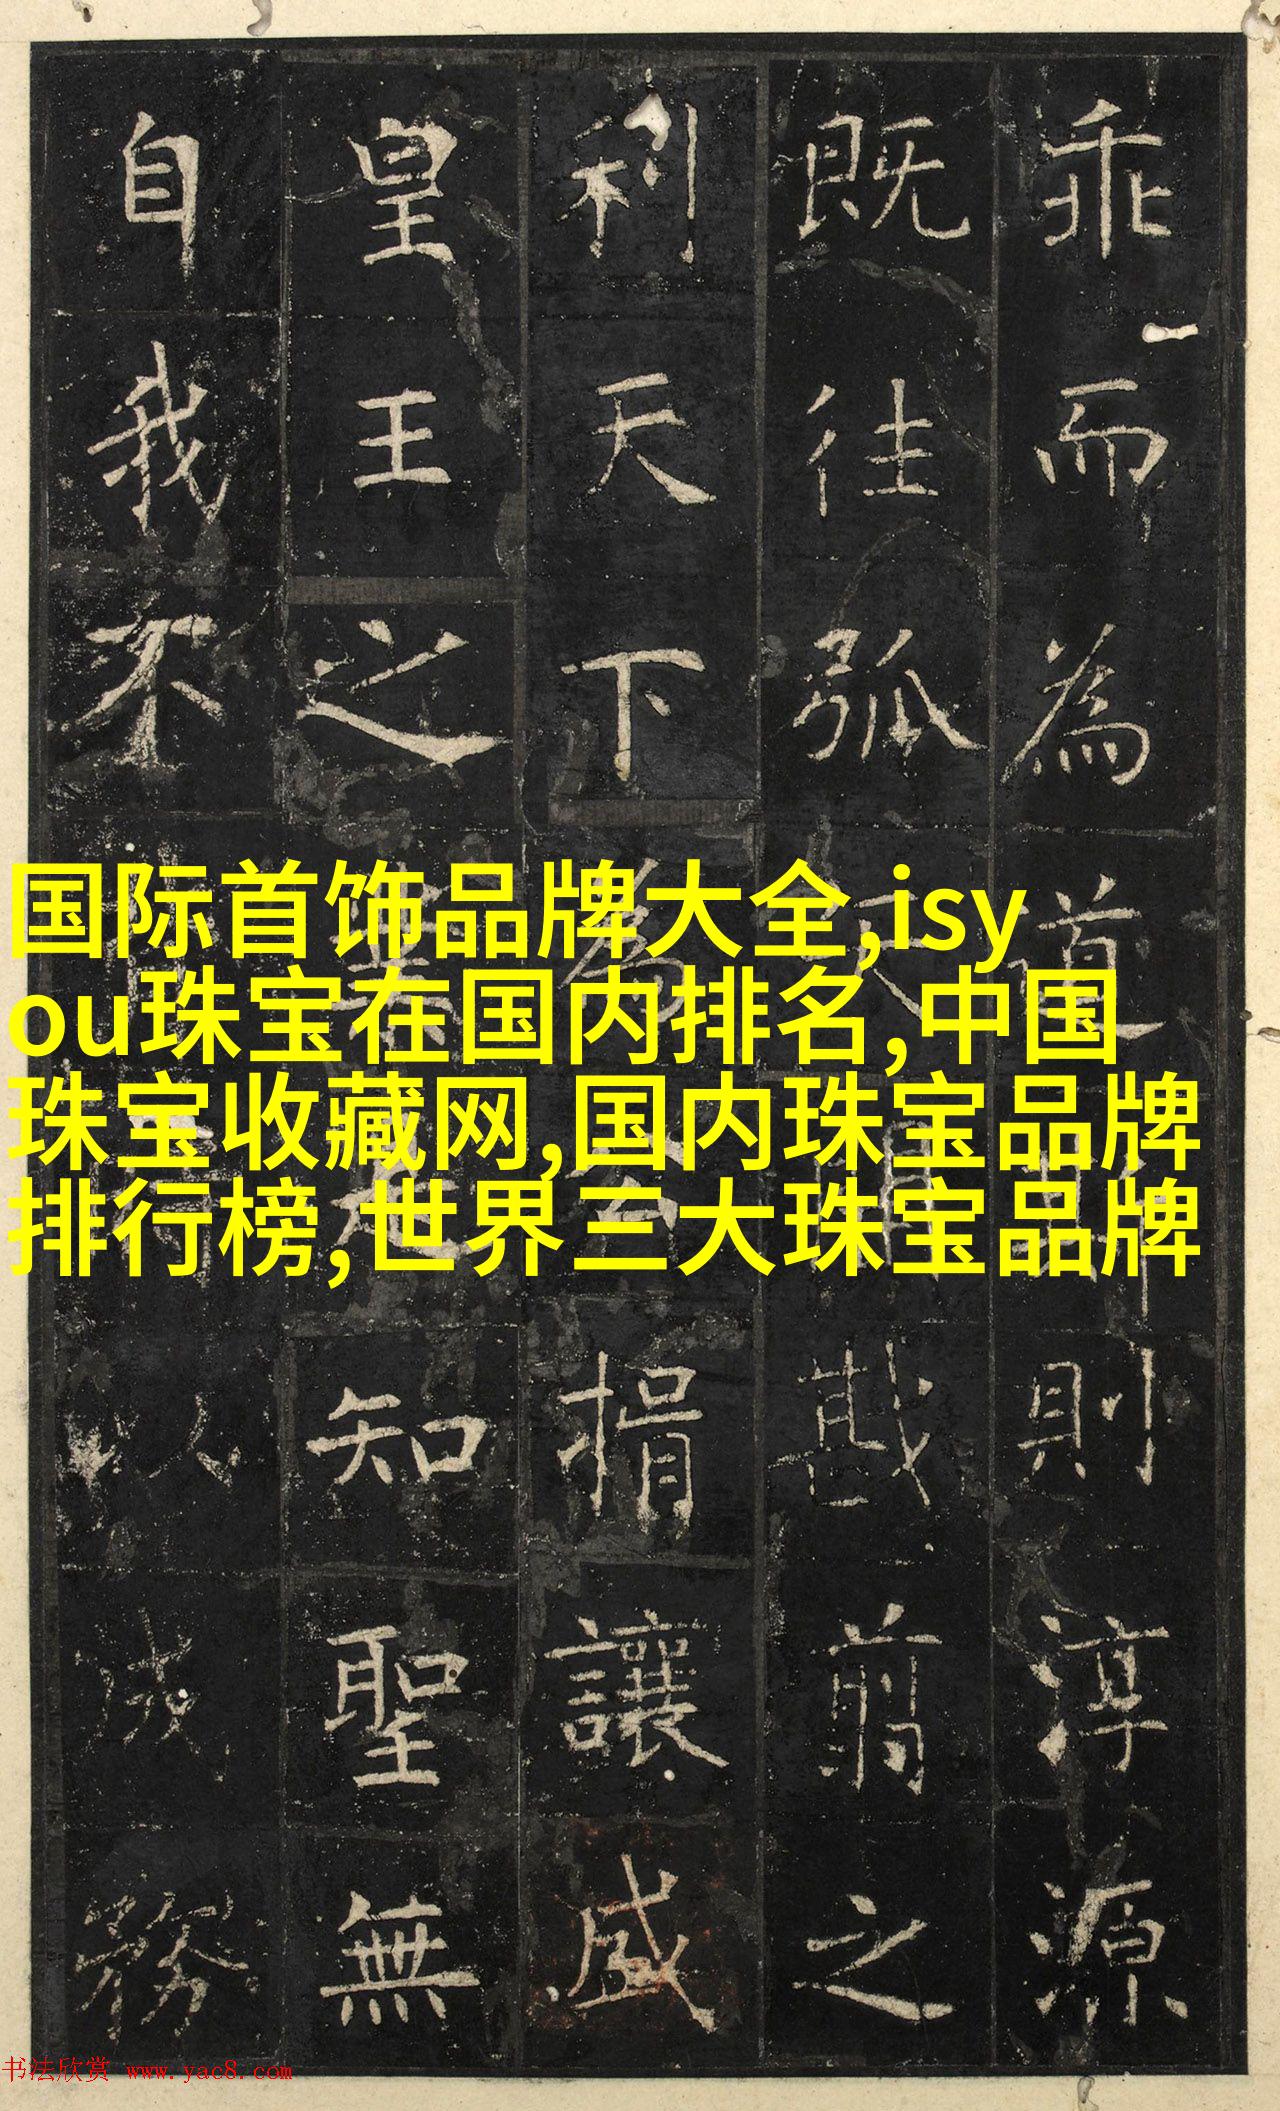 乖而為道則淳源
既往弧戡翦之
利天下為捐讓盛
皇王之知聖無
自我不以成務
国际首饰品牌大全,isy
ou珠宝在国内排名,中国
珠宝收藏网,国内珠宝品牌
排行榜,世界三大珠宝品牌
书法欣赏 www.yac8.com